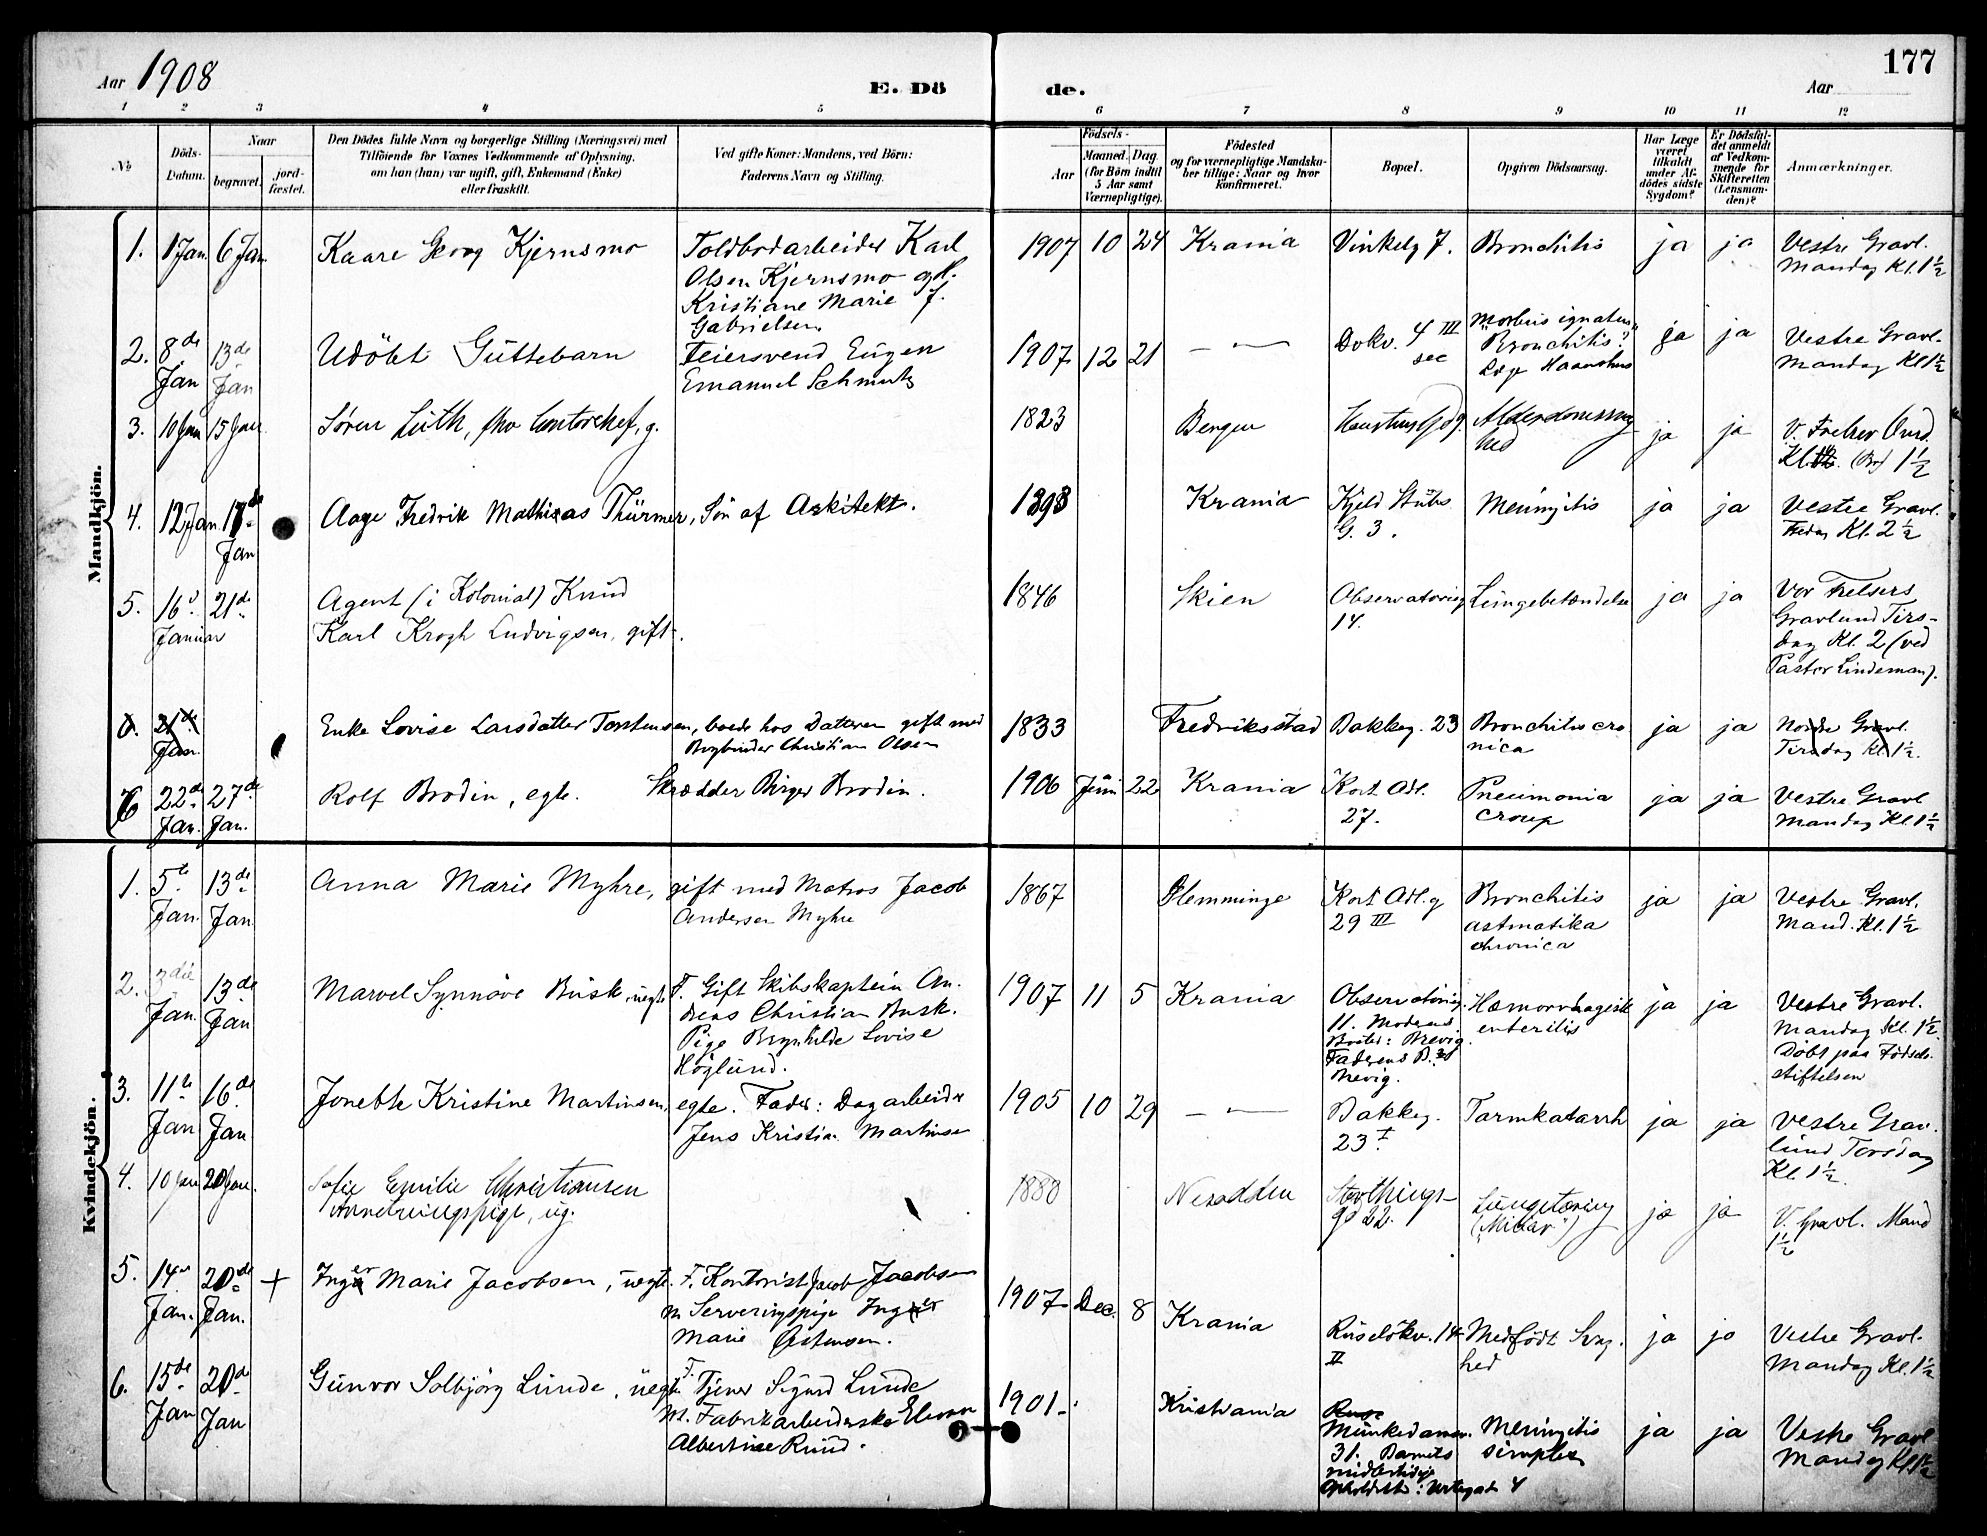 177
Aar 1908
E. Dö
de.
Aar
1 2 3 4 5 6 7 8 9 10 11 12
№
Döds-
Datum.
Naar
begravet.
jord-
fæstet.
Den Dödes fulde Navn og borgerlige Stilling (Næringsvei) med
Tilföiende for Voxnes Vedkommende af Oplysning,
om han (hun) var ugift, gift, Enkemand (Enke)
eller fraskilt.
Ved gifte Koner: Mandens, ved Börn:
Faderens Navn og Stilling.
Födsels-
Aar
Maaned. Dag.
(for Börn indtil
5 Aar samt
Værnepligtige).
Födested
og for værnepligtige Mandska-
ber tillige: Naar og hvor
konfirmeret.
Bopæl.
Opgiven Dödsaarsag.
Har Læge
været
tilkaldt
under Af-
dödes sidste
Sygdom?
Er Dödsfal-
det anmeldt
af Vedkom-
mende for
Skifteretten
(Lensman-
den)?
Anmærkninger.
Mandkjön.
1. 1 Jan. 6 Jan. Kaare Georg Kjernsmo
Toldbodarbeider Karl
Olsen Kjernsmo og H.
Kristiane Marie f.
Gabrielsen.
1907 10 24 Krania Vinkelg 7. Bronchitis ja ja
Vestre Gravl.
Mandag Kl. 1 1/2
2. 8de Jan 13de Jan Udöbt Guttebarn
Feiersvend Eugen
Emanuel Schmutz
1907 12 21 — " — Dokv. 4 III
Morbus ignatus
"Bronchitis?"
ja ja
Vestre Gravl.
Mandag Kl 1 1/2
3. 10 Jan 15 Jan Sören Lüth, fhv Contorchef, g.
1823 Bergen
Alderdomssvag
hed
ja ja
V. Frelser
Kl. 1 1/2
4. 12 Jan. 17de Jan Aage Fredrik Mathias Thürmer, Sön af Arkitekt.
1893 Krania
Kjeld Stubs
G. 3.
Meningitis ja ja
Vestre Gravl.
Fredag Kl. 2 1/2
5. 16d. 21de Januar
Agent (i Kolonial) Knud
Karl Krogh Ludvigsen, gift.
1846 Skien
Observatoriug
14.
Lungebetændelse ja ja
Vor Frelsers
Gravlund Tirs-
dag Kl. 2 (ved
Pastor Lindeman).
6. 21de Jan.
Enke Lovise Larsdatter Torstensen, boede hos Datteren gift med
Bogbinder Christian Olsen
1833 Fredriksstad Bakkeg. 23
Bronchitis cro
nica
ja ja
Nordre Gravl.
Tirsdag Kl. 1 1/2.
6 22de Jan. 27de Jan. Rolf Brodin, egte. Skrædder Birger Brodin.
1906 Juni 22 Krania
Kort Adl.
27.
Pneumonia
croup
ja ja
Vestre Gravl
Mandag Kl. 1 1/2
Kvindekjön.
1. 5te Jan. 13de Jan Anna Marie Myhre, gift med Matros Jacob
Andersen Myhre
1867 Slemminge
Kort Adl. g
29 III
Bronchitis
astmatika
chronica
ja ja
Vestre Gravl.
Mand. Kl. 1 1/2
2. 3die Jan. 13de Jan Marvel Synnöve Busk, uegte
F. Gift Skibskaptein An.
dreas Christian Busk.
Pige Brynhilde Lovise
Höglund.
1907 11 5 Krania
Observatoriug.
11. Moderens
Bosted: Brevig.
Faderens B. "
Brevig.
Hæmorrhagisk
enteritis
ja ja
Vestre Gravl.
Mandag Kl. 1 1/2
Döbt paa Födsels-
stiftelsen
3. 11te Jan 16de Jan Jonette Kristine Martinsen, egte. Fader: Dagarbeider
Jens Kristian Martinsen
1905 10 29 — " —
Bakkeg.
23 I
Tarmkatarrh ja ja
Vestre Grav.
lund Torsdag
Kl. 1 1/2.
4. 10 Jan 20 Jan. Sofie Emilie Christiansen
ug.
1880 Nesodden
Storthings-
gd 22.
Lungetæring
("Miliær")
ja ja
V. Gravl. Mand
1 1/2
5. 14de Jan. 20de Jan. + Inger Marie Jacobsen, uegte.
F. Kontorist Jacob Jacobsen
M. Serveringspige Inger
Marie Östensen.
1907 Dec. 8 Krania
Ruselökv. 14
II
Medfödt Svag.
hed
ja ja
Vestre Gravl.
Mandag Kl. 1 1/2
6. 15de Jan 20de Jan Gunvor Solbjörg Lunde, uegte
F. Tjener Sigurd Lunde
M. Fabrikarbeiderske Elenor
Albertine Ruud.
1901. Kristiania
Munkedamsv.
31. Barnets
midlertidige
Opholdsst: Vestregade 4
Meningitis
simplex
ja ja
Vestre Gravl
Mandag Kl 1 1/2